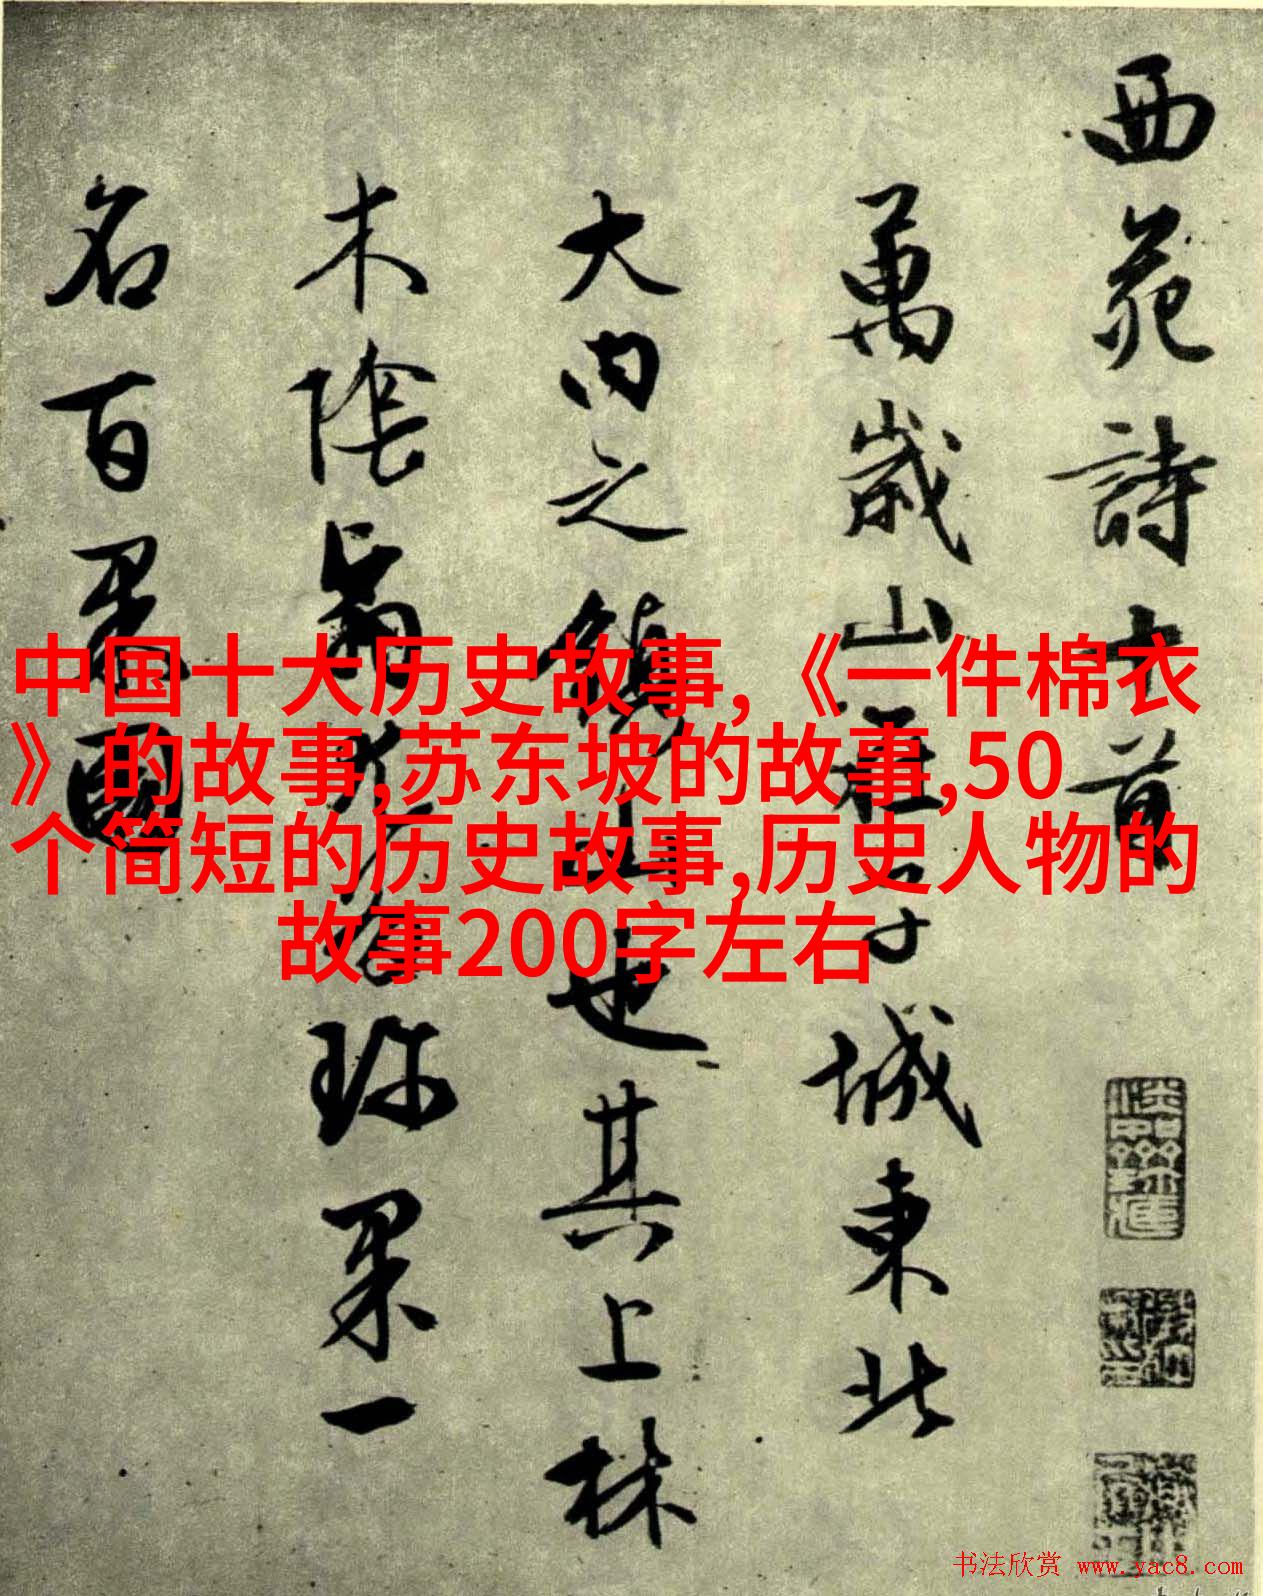 西苑詩十首
萬歲山在子城東北
大内之鎮山也其上林
木陰翳尤多珍果一
名百果園
中国十大历史故事,《一件棉衣
》的故事,苏东坡的故事,50
个简短的历史故事,历史人物的
故事200字左右
书法欣赏 www.yac8.com